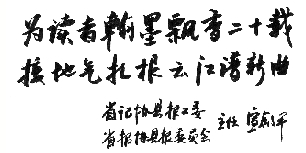 为读者翰墨飘香二十载
接地气扎根云江谱新曲
省记协县报工委
省报协县报委员会 主任